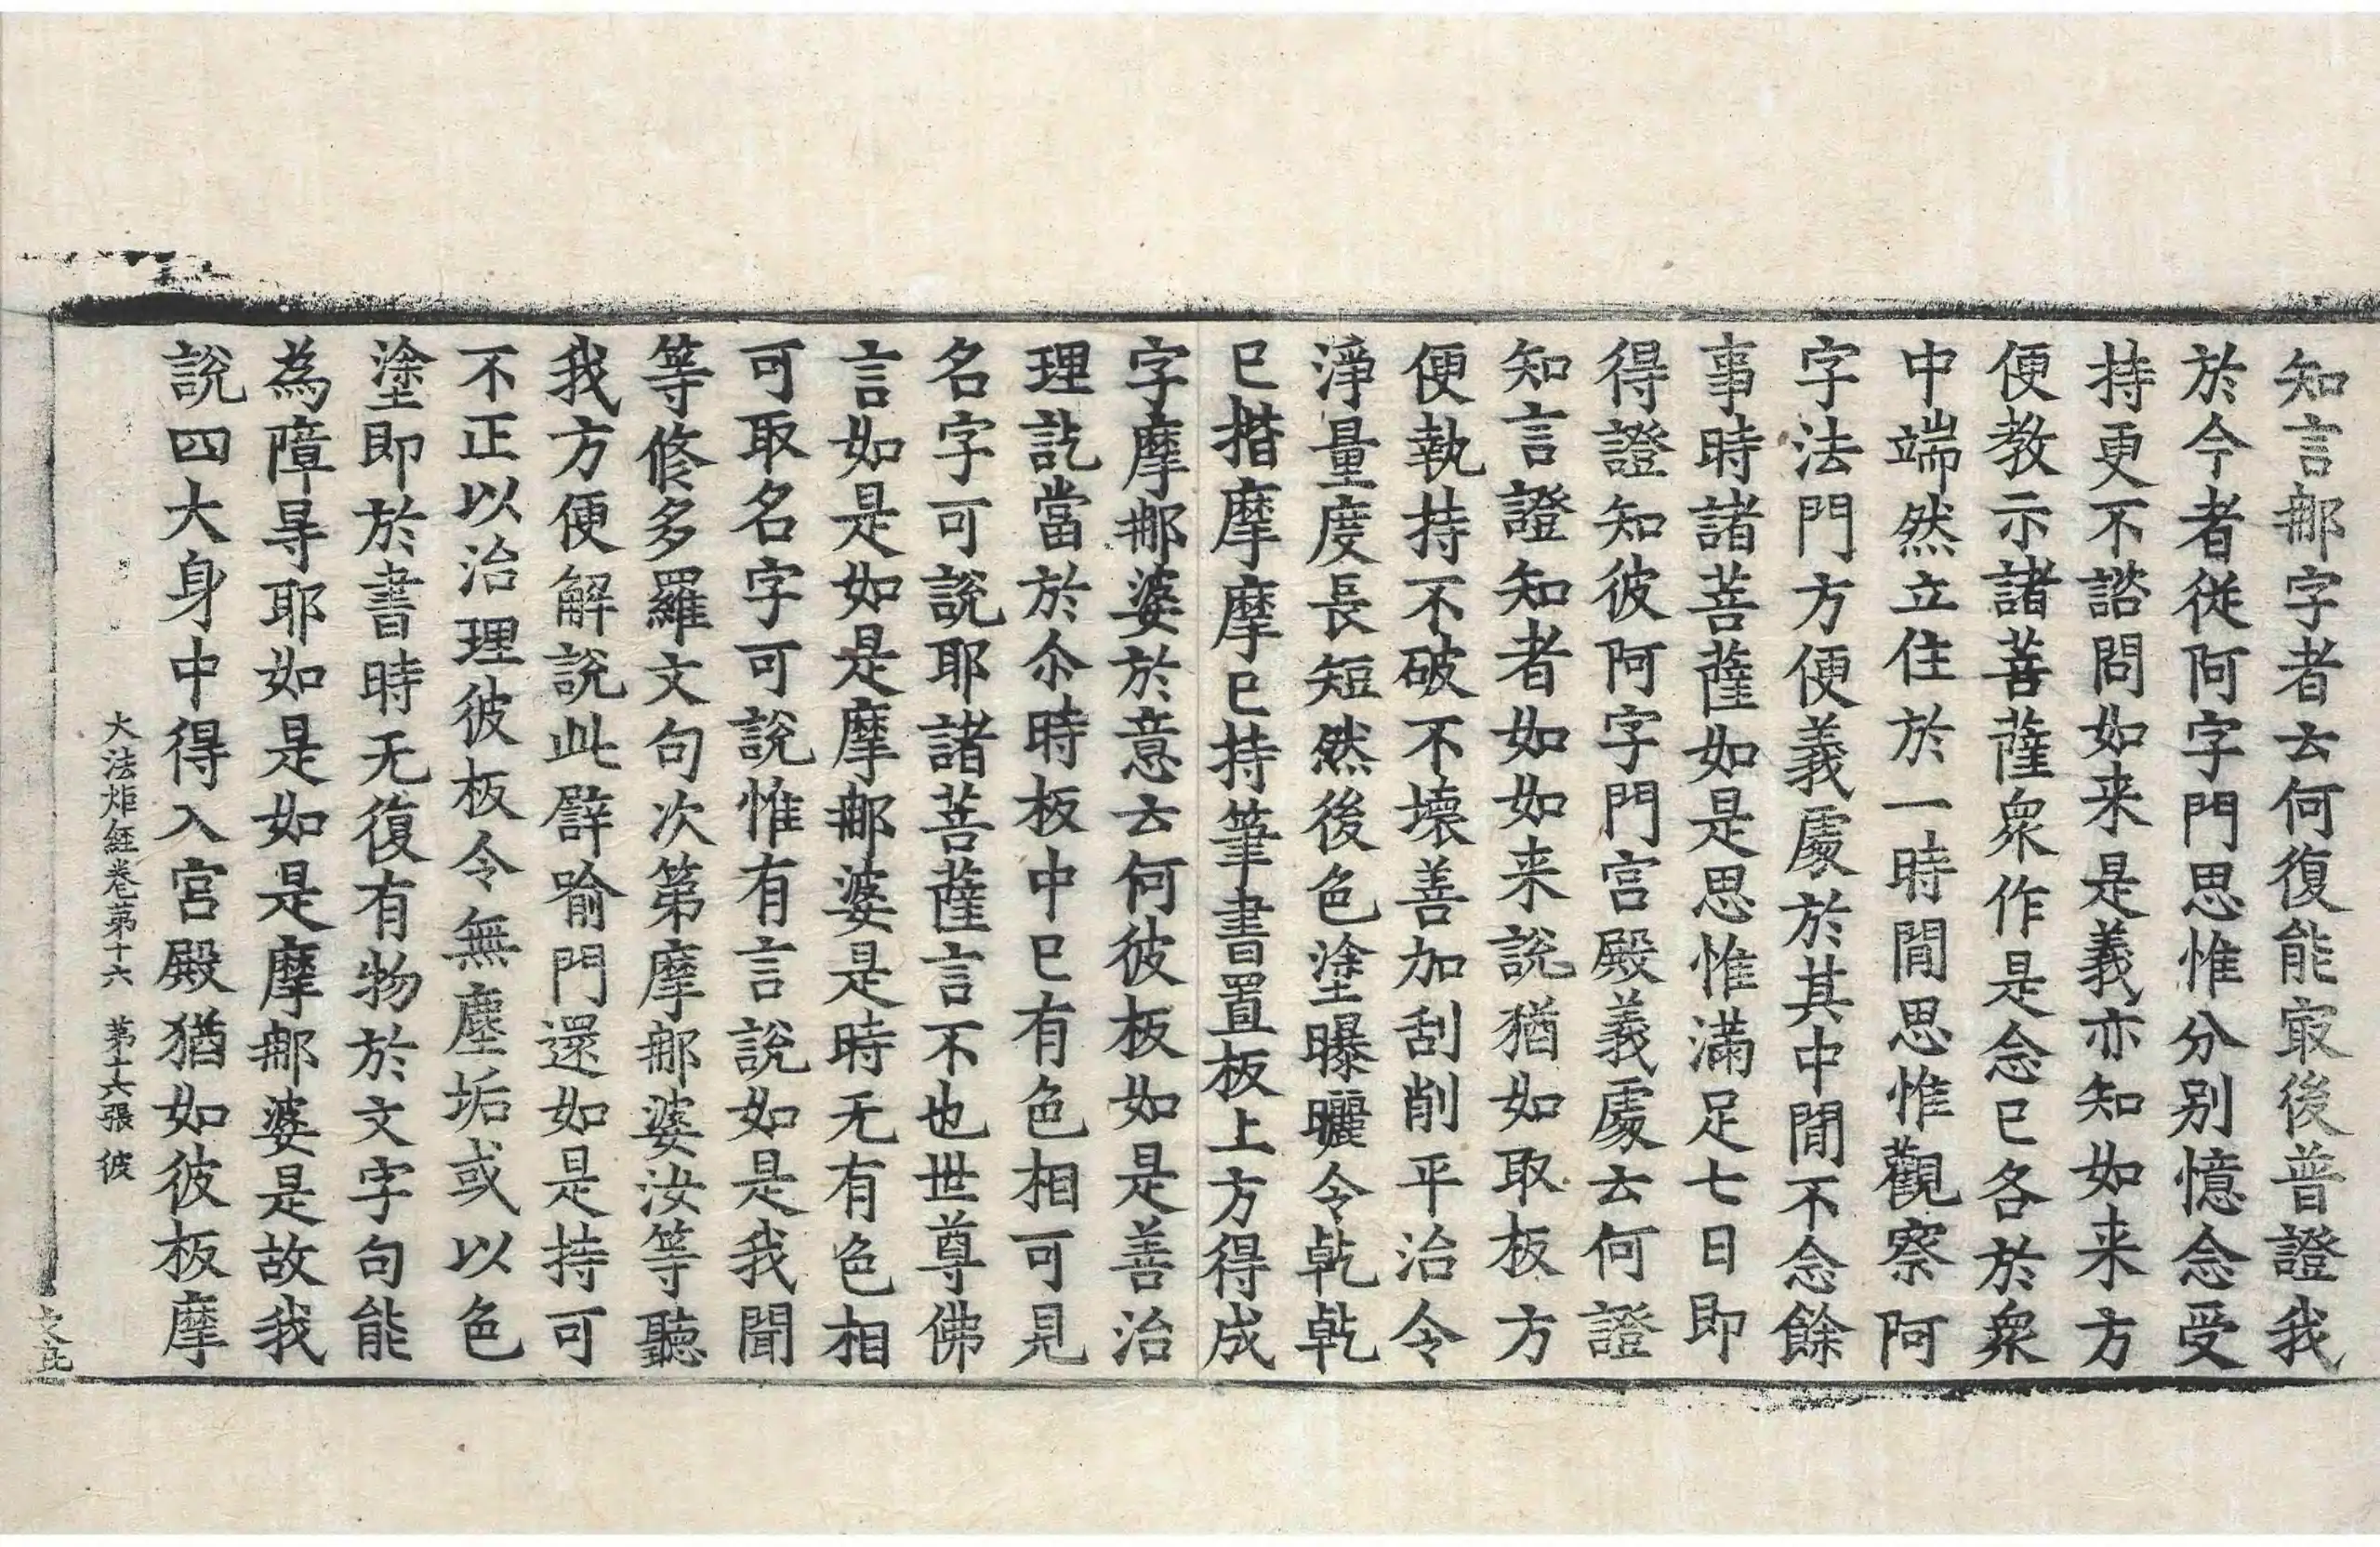 知言𨚗字者云何復能㝡後普證我
於今者從阿字門思惟分别憶念受
持更不諮問如来是義亦知如来方
便教示諸菩薩衆作是念已各於衆
中端然立住於一時閒思惟觀察阿
字法門方便義處於其中閒不念餘
事時諸菩薩如是思惟滿足七日即
得證知彼阿字門宫殿義處云何證
知言證知者如如来說猶如取板方
便執持不破不壞善加刮削平治令
淨量度長短然後色塗曝曬令乾乾
已揩摩摩已持筆書置板上方得成
字摩𨚗婆於意云何彼板如是善治
理訖當於尒時板中已有色相可見
名字可說耶諸菩薩言不也世尊佛
言如是如是摩𨚗婆是時无有色相
可取名字可說惟有言說如是我聞
等修多羅文句次第摩𨚗婆汝等聽
我方便解說此譬喻門還如是持可
不正以治理彼板令無塵垢或以色
塗即於書時无復有物於文字句能
為障㝵耶如是如是摩𨚗婆是故我
說四大身中得入宫殿猶如彼板摩
大法炬経卷苐十六 苐十六張 彼